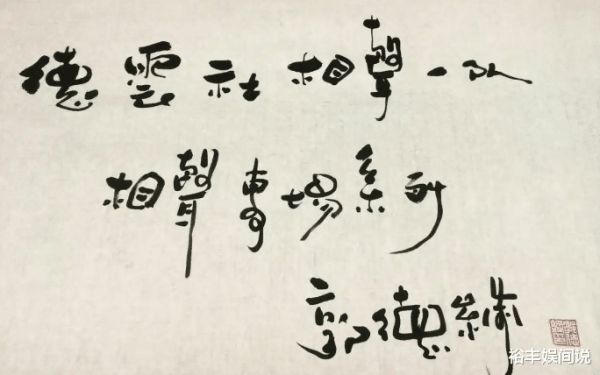 德雲社相聲一队
相聲專場系列
郭德綱
裕丰娱间说